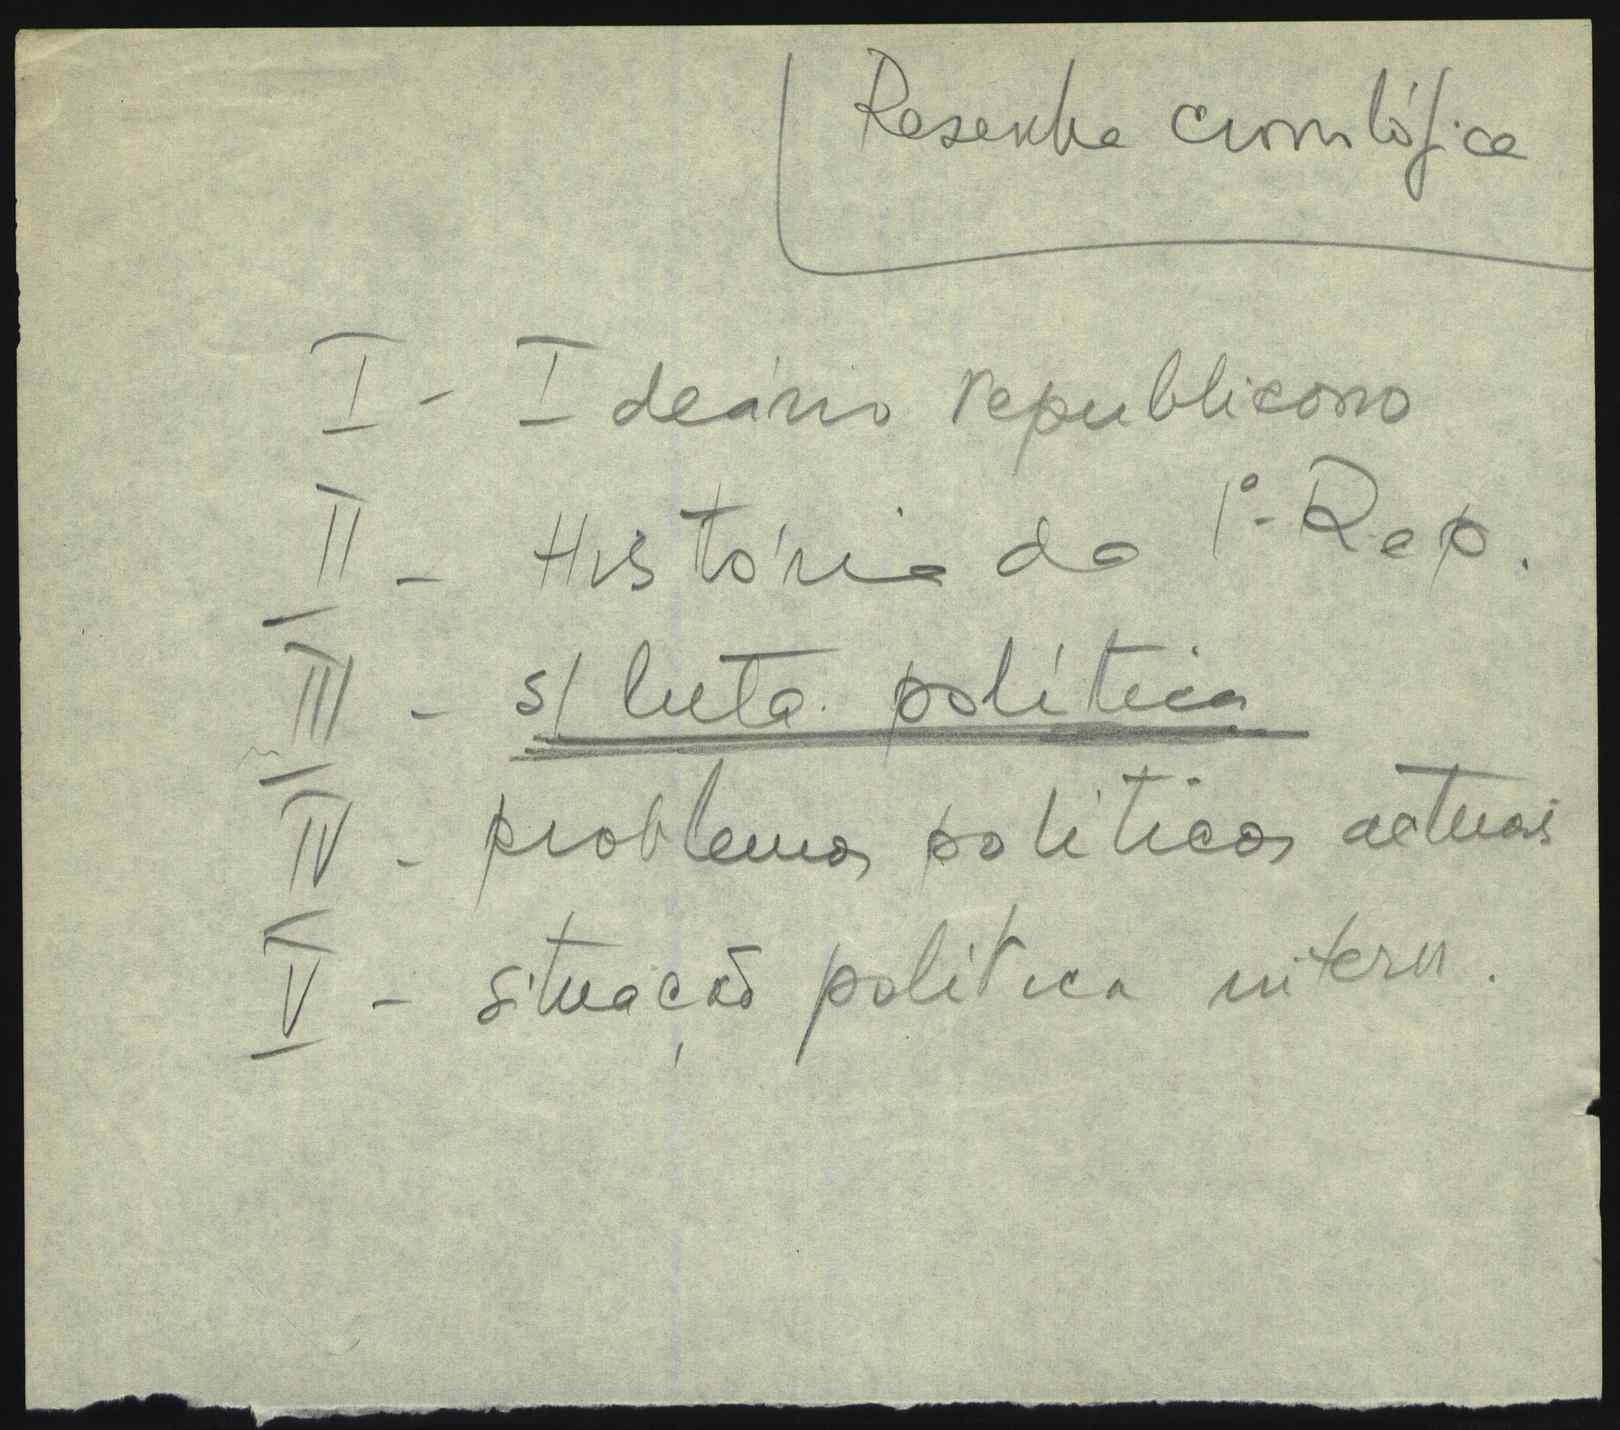 Resenha cronológica
I - Ideário republicano
II - História da 1ª Rep.
III - s/ luta política
IV - problemas políticos actuais
V - situação política intern.